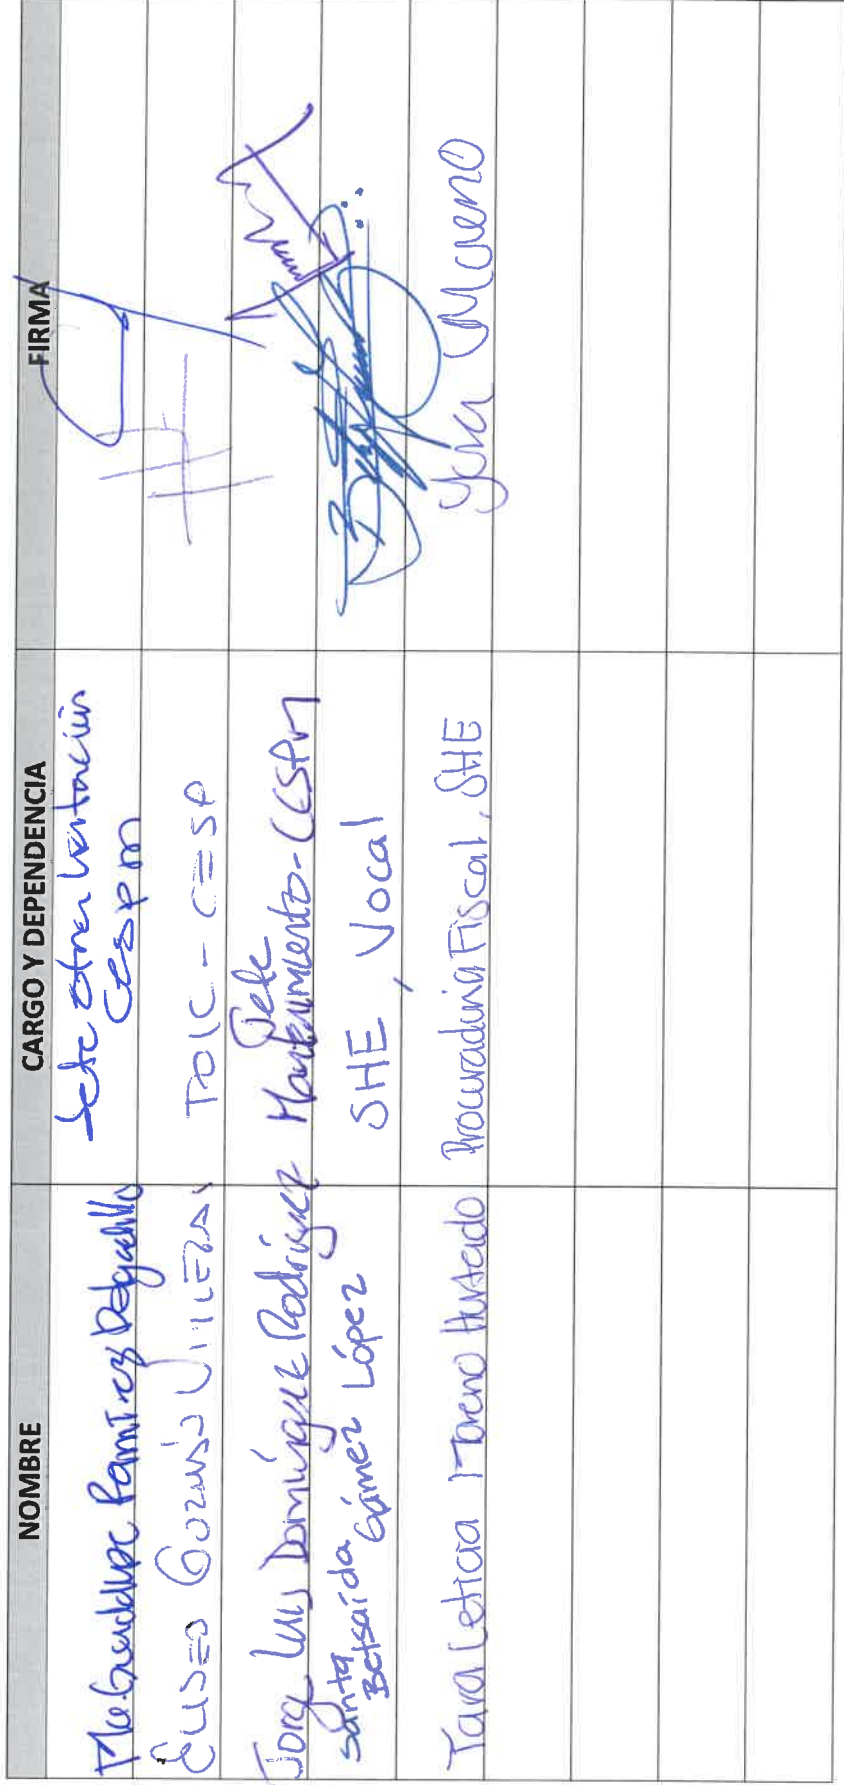 NOMBRE CARGO Y DEPENDENCIA FIRMA
Ma Guadalupe Ramírez Delgadillo Jefe Contratación
CESPM
Eliseo González TOIC - CESP
Jorge Luis Domínguez Rodríguez Jefe
Mantenimiento - CESPM
Santa
Betsaida Gámez López SHE, Vocal
Yara Leticia Moreno Hurtado Procuraduría Fiscal, SHE Yara Moreno